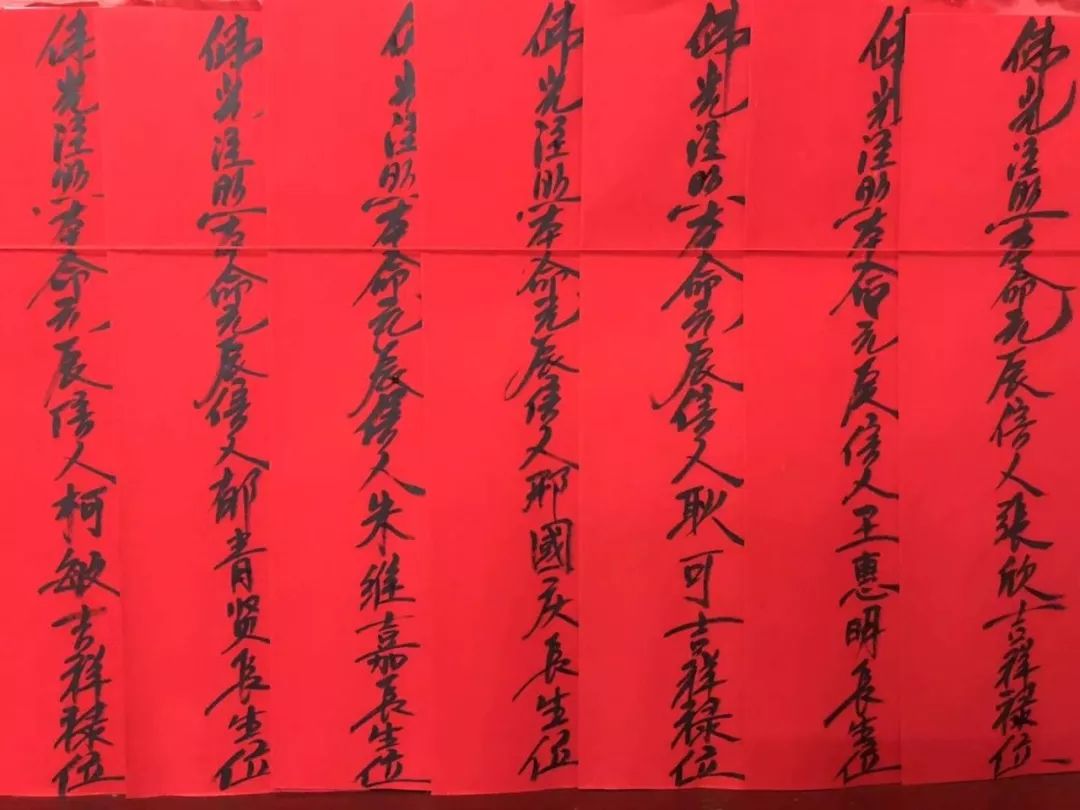 佛光注照本命元辰信人張欣吉祥祿位
佛光注照本命元辰信人王惠明長生位
佛光注照本命元辰信人耿可吉祥祿位
佛光注照本命元辰信人邢國庆長生位
佛光注照本命元辰信人朱维嘉長生位
佛光注照本命元辰信人郁青贤長生位
佛光注照本命元辰信人柯敏吉祥祿位